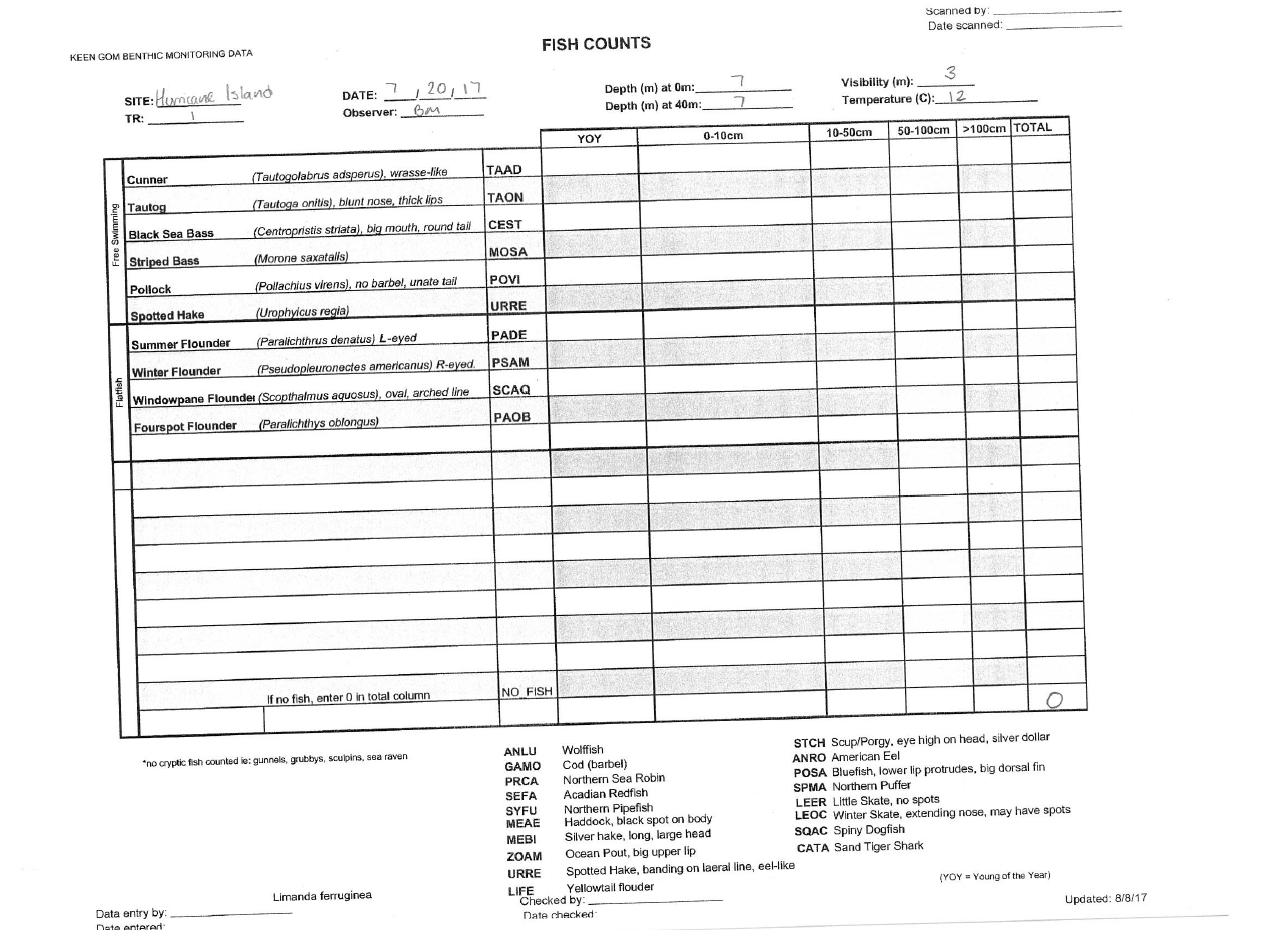 Scanned by:
Date scanned:
KEEN GOM BENTHIC MONITORING DATA
FISH COUNTS
SITE: Hurricane Island
DATE: 7 / 20 / 17
Depth (m) at 0m: 7
Visibility (m): 3
TR: 1
Observer: BM
Depth (m) at 40m: 7
Temperature (C): 12
YOY 0-10cm 10-50cm 50-100cm >100cm TOTAL
Free Swimming
Cunner (Tautogolabrus adsperus), wrasse-like TAAD
Tautog (Tautoga onitis), blunt nose, thick lips TAON
Black Sea Bass (Centropristis striata), big mouth, round tail CEST
Striped Bass (Morone saxatalis) MOSA
Pollock (Pollachius virens), no barbel, unate tail POVI
Spotted Hake (Urophyicus regia) URRE
Flatfish
Summer Flounder (Paralichthrus denatus) L-eyed PADE
Winter Flounder (Pseudopleuronectes americanus) R-eyed. PSAM
Windowpane Flounder (Scopthalmus aquosus), oval, arched line SCAQ
Fourspot Flounder (Paralichthys oblongus) PAOB
If no fish, enter 0 in total column NO_FISH 0
*no cryptic fish counted ie: gunnels, grubbys, sculpins, sea raven
ANLU Wolffish
GAMO Cod (barbel)
PRCA Northern Sea Robin
SEFA Acadian Redfish
SYFU Northern Pipefish
MEAE Haddock, black spot on body
MEBI Silver hake, long, large head
ZOAM Ocean Pout, big upper lip
URRE Spotted Hake, banding on laeral line, eel-like
LIFE Yellowtail flouder
STCH Scup/Porgy, eye high on head, silver dollar
ANRO American Eel
POSA Bluefish, lower lip protrudes, big dorsal fin
SPMA Northern Puffer
LEER Little Skate, no spots
LEOC Winter Skate, extending nose, may have spots
SQAC Spiny Dogfish
CATA Sand Tiger Shark
(YOY = Young of the Year)
Limanda ferruginea
Checked by:
Updated: 8/8/17
Data entry by:
Date checked:
Date entered: